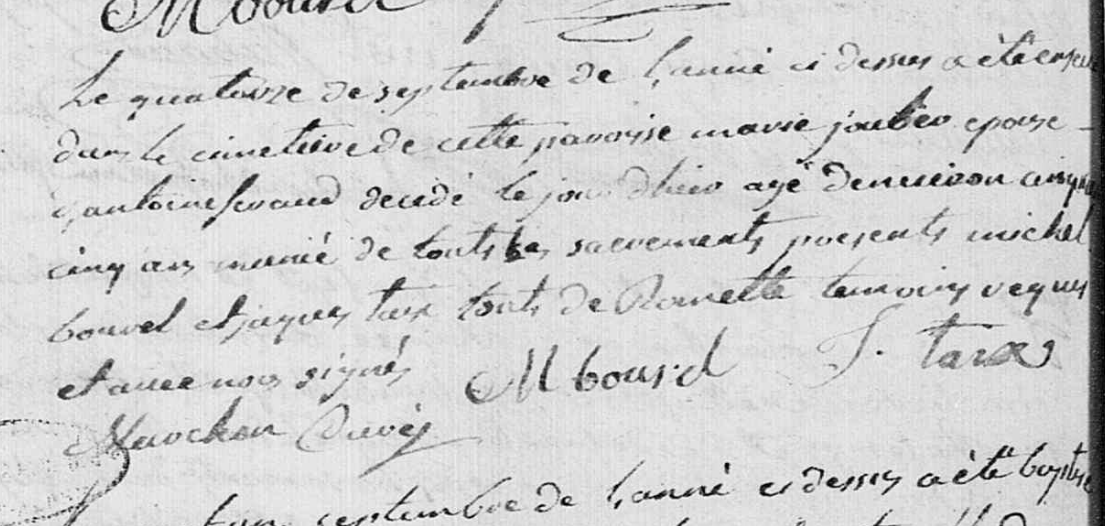 Mbourel
Le quatorze de septembre de l'anné ci dessus a èté enseve
dans le cimetiere de cette paroisse marie jouber epouse
d'antoine decedé le jour dhier agé denviron cinqua
cinq ans munié de touts les sacrements presents michel
bourel et jaques tarx touts de Romette temoins requis
et avec nous signés Mbourel J. tarx
Marchon Curé
septembre de l'anné ci dessus a èté baptise